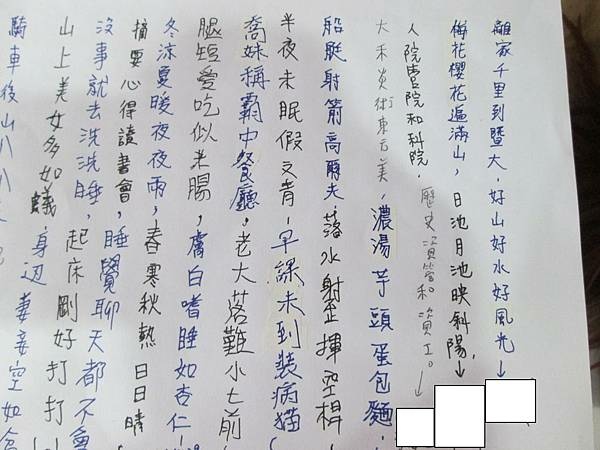 離家千里到暨大，好山好水好風光↓
梅花櫻花遍滿山，日池月池映斜陽，↓
人院管院和科院，歷史資管和資工。↓
大禾炎術東石美，濃湯芋頭蛋包麵，
船艇射箭高爾夫，落水射歪揮空桿
半夜未眠假文青，早課未到裝病貓
喬妹稱霸中餐廳，老大落難小七前
腿短愛吃似米腸，膚白嗜睡如杏仁
冬涼夏暖夜夜雨，春寒秋熱日日晴
摘要心得讀書會，睡覺聊天都不會
沒事就去洗洗睡，起床剛好打打
山上美女多如蟻，身邊妻妾空如
騎車後山八八